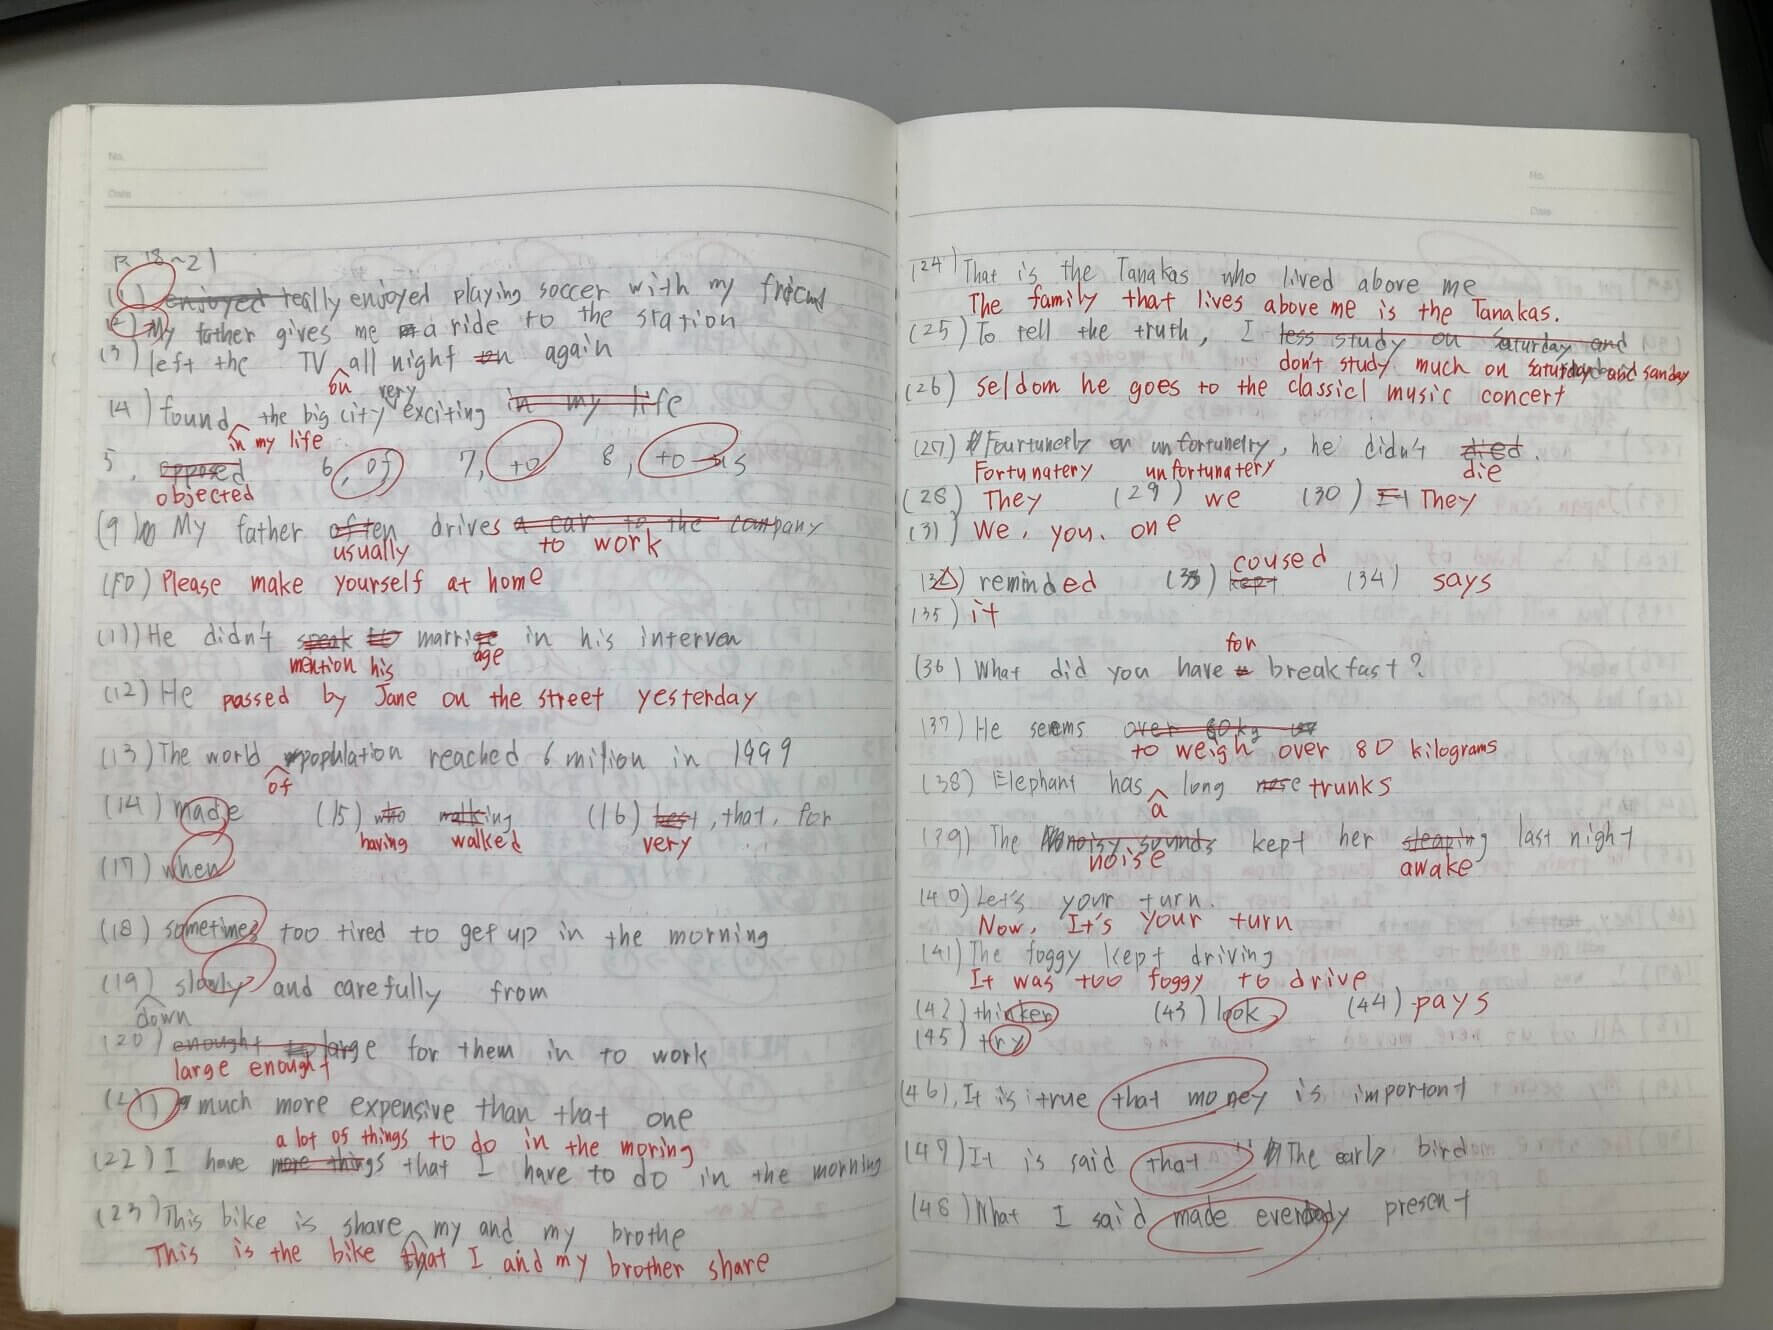 No.
Date
P 18~21
(1) enjoyed really enjoyed playing soccer with my friend
(2) My father gives me a ride to the station
(3) left the TV all night on again
on very
(4) found the big city exciting in my life
in my life
5, opposed 6, of 7, to 8, to us
objected
(9) My father often drives a car to the company
usually to work
(10) Please make yourself at home
(11) He didn't speak to marrige in his interven
mention his age
(12) He passed by Jane on the street yesterday
(13) The world population reached 6 milion in 1999
of
(14) made (15) who walking (16) best, that, for
having walked very
(17) when
(18) sometimes too tired to get up in the morning
(19) slowly and carefully from
down
(20) enought to large for them in to work
large enought
(21) much more expensive than that one
a lot of things to do in the moring
(22) I have more things that I have to do in the morning
(23) This bike is share my and my brothe
This is the bike that I and my brother share
No.
Date
(24) That is the Tanakas who lived above me
The family that lives above me is the Tanakas.
(25) To tell the truth, I less study on Saturday and
don't study much on saturday and sanday
(26) seldom he goes to the classicl music concert
(27) Fourtunetly or unfortunetry, he didn't died.
Fortunatery unfortunatery die
(28) They (29) we (30) They
(31) We, you, one
coused
(32) reminded (33) kept (34) says
(35) it
for
(36) What did you have breakfast?
(37) He seems over 80kg
to weigh over 80 kilograms
(38) Elephant has long nose trunks
a
(39) The noisy sounds kept her sleaping last night
noise awake
(40) Let's your turn.
Now, It's your turn
(41) The foggy kept driving
It was too foggy to drive
(42) thinker (43) look (44) pays
(45) try
(46), It is true that money is important
(47) It is said that The early bird
(48) What I said made everybody present